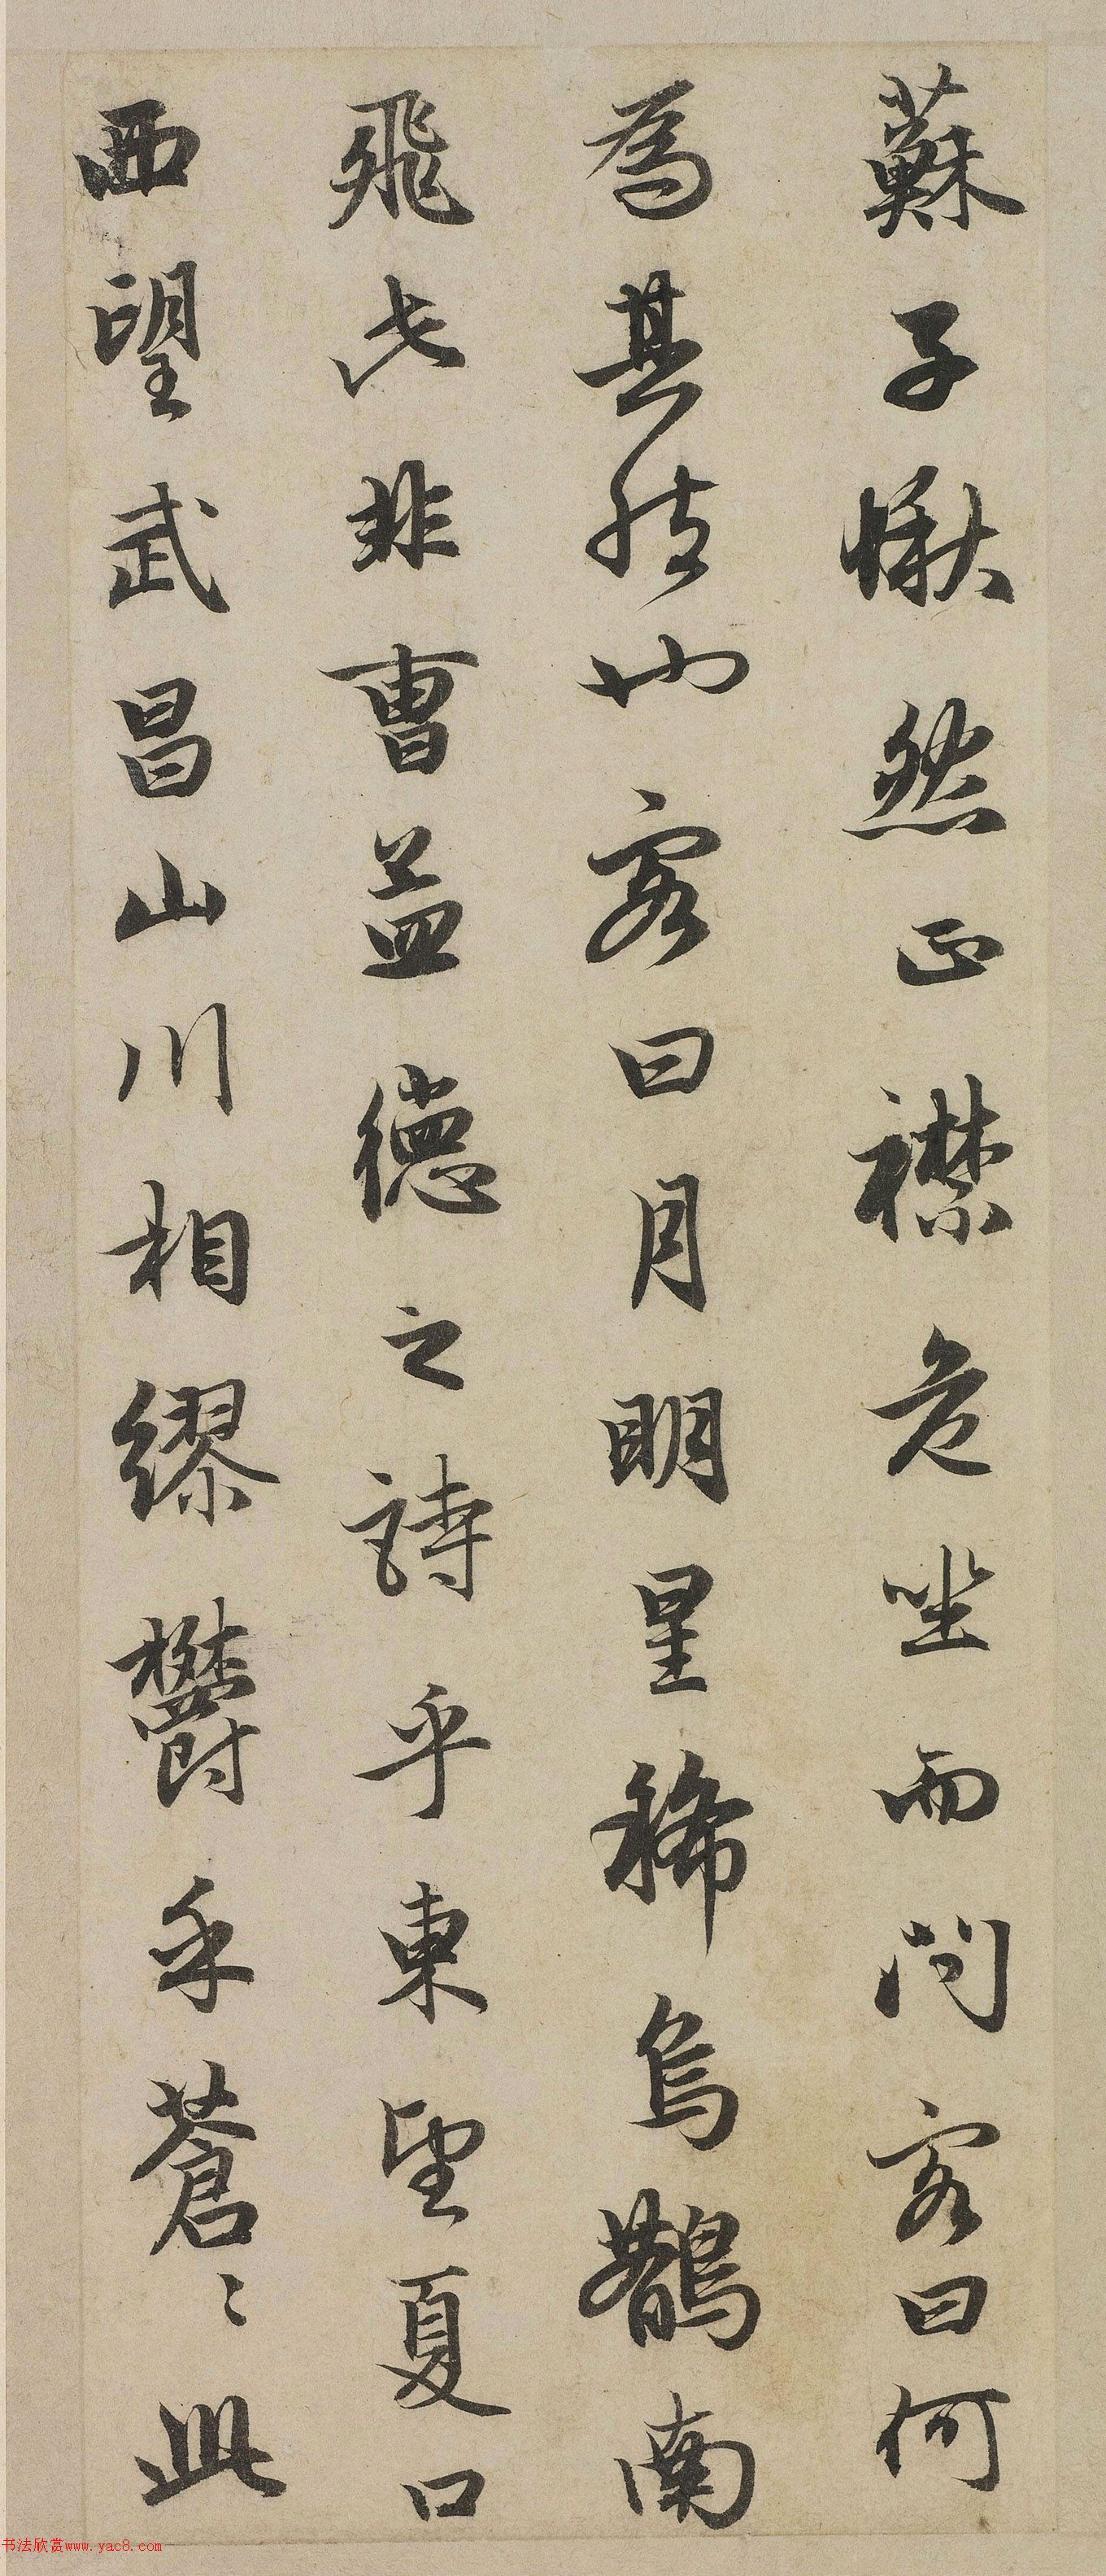 蘇子愀然正襟危坐而問客曰何
為其然也客曰月明星稀烏鵲南
飛此非曹孟德之詩乎東望夏口
西望武昌山川相繆鬱乎蒼〻此
书法欣赏www.yac8.com